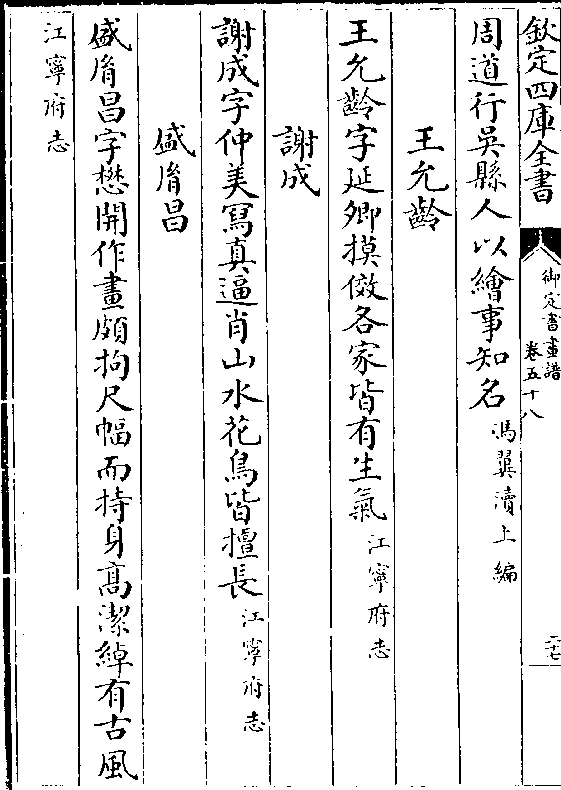 欽定四庫全書
御定書畫譜
卷五十八
二七
周道行吳縣人以繪事知名馮翼瀆上編
王允齡
王允齡字延卿摸倣各家皆有生氣江寧府志
謝成
謝成字仲美寫真逼肖山水花鳥皆擅長江寧府志
盛胤昌
盛胤昌字懋開作畫頗拘尺幅而持身髙潔綽有古風
江寧府志